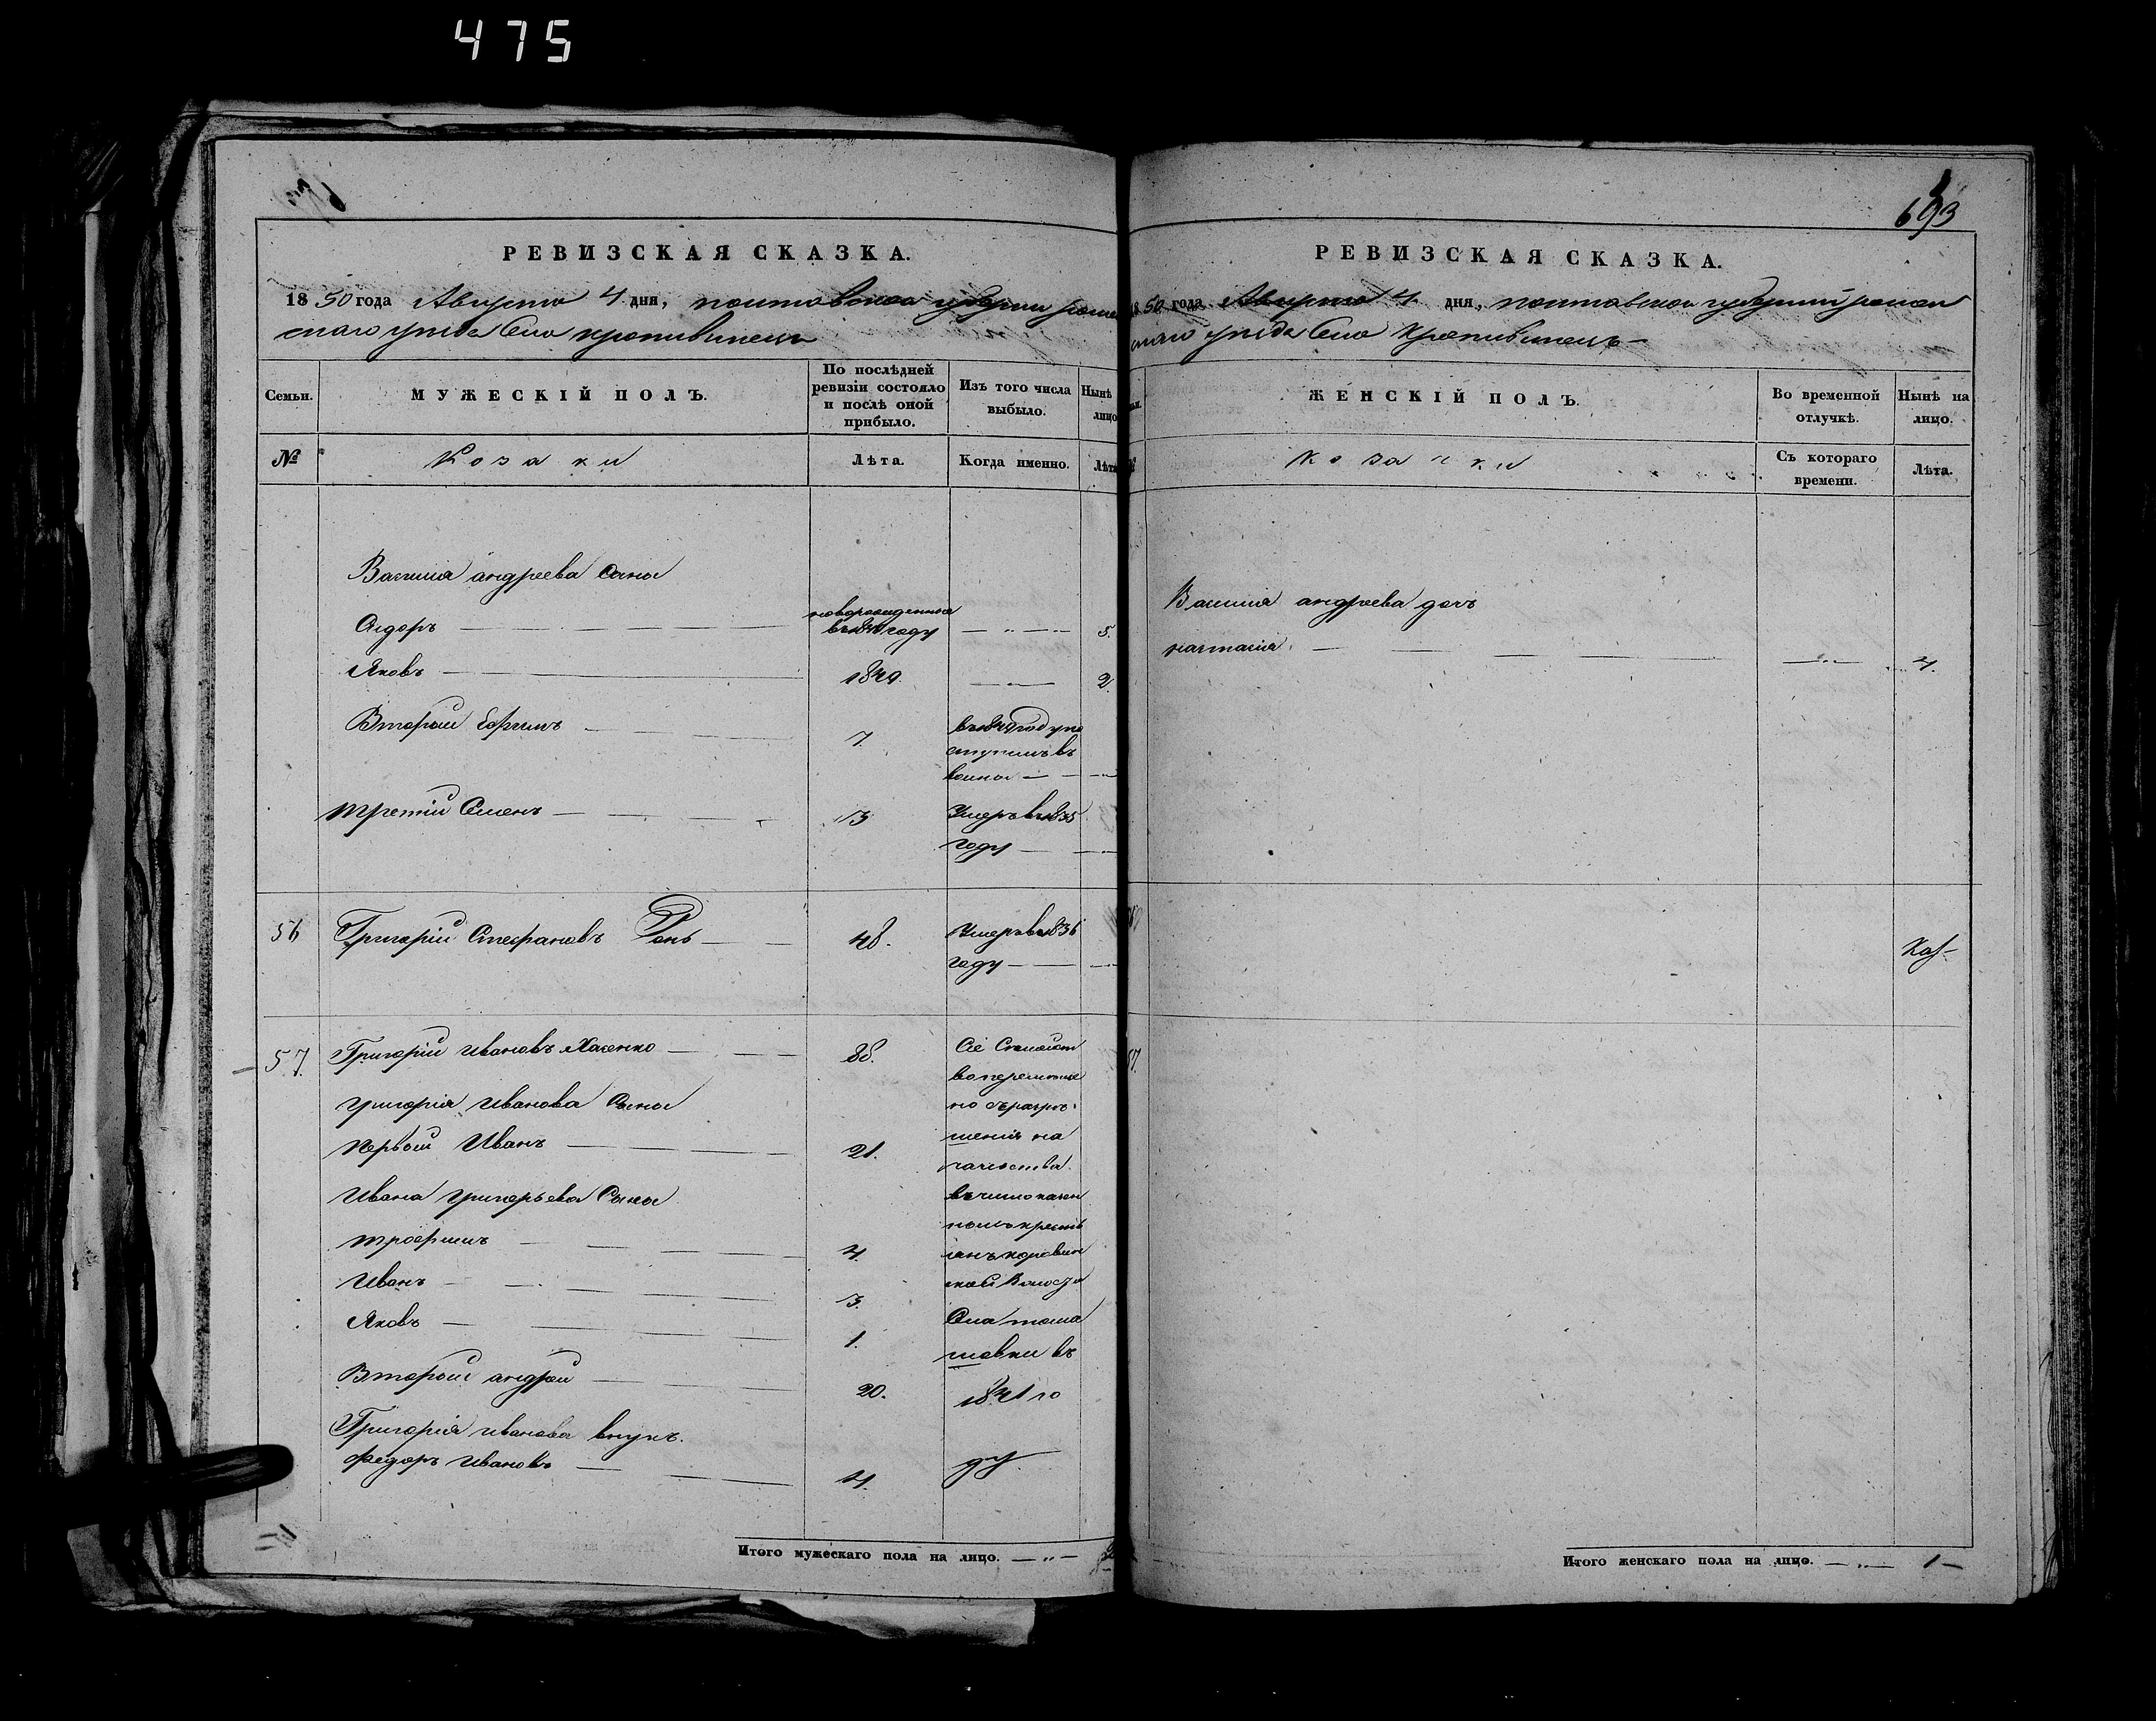 475
693
РЕВИЗСКАЯ СКАЗКА.
1850 года Августа 4 дня, полтавской губернии роме
скаго уезда Село кропивинець
Семьи.
МУЖЕСКІЙ ПОЛЪ.
По послѣдней
ревизіи состояло
и послѣ оной
прибыло.
Изъ того числа
выбыло.
Нынѣ
лицо
№
Козаки
Лѣта.
Когда именно.
Лѣта
Василия андреева Сыны
Сидоръ новорожденный
въ году 5.
Яковъ 1849. 2.
Вторый Ефимъ 7.
Третий Семенъ 13 Умеръ в 1835
году
56 Григорий Стефановъ Рень 48. Умеръ в 1836
году
57. Григорий Ивановъ 88. Сие Семейст
во перемеще
но съ разре
шения на
чальства
въ число казен
ныхъ кресть
янъ коровин
ской Волости
Села
въ
1841 го
ду
Григория Иванова Сыны
Первый Иванъ 21.
Ивана Григорьева Сыны
Трофимъ 4.
Иванъ 3.
Яковъ 1.
Вторый андрей 20.
Григория иванова внукъ.
Федоръ Ивановъ 4.
Итого мужескаго пола на лицо.
РЕВИЗСКАЯ СКАЗКА.
1850 года Августа 4 дня, полтавской губернии ромен
скаго уезда Село Кропивинець
ЖЕНСКІЙ ПОЛЪ.
Во временной
отлучкѣ.
Нынѣ на
лицо.
Козачки
Съ котораго
времени.
Лѣта.
Василия андреева дочь
настасия 4.
57.
Итого женскаго пола на лицо. 1